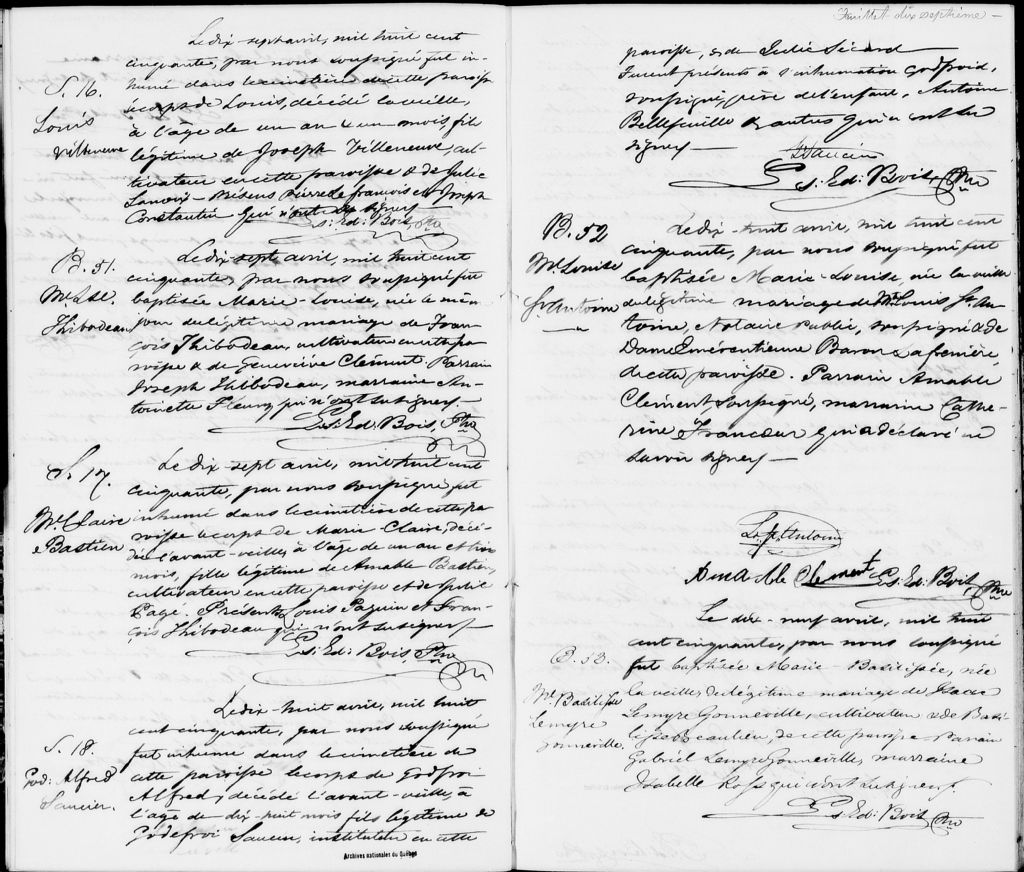 S. 16.
Louis
Villeneuve
Le dix-sept avril, mil huit cent
cinquante, par nous soussigné fut in-
humé dans le cimetière de cette paroisse
le corps de Louis, décédé la veille,
à l'âge de un an & un mois, fils
légitime de Joseph Villeneuve, cul-
tivateur en cette paroisse & de Julie
Lanoix - Présens Pierre St françois et Joseph
Constantin qui n'ont su signer
Ls. Ed: Bois, Ptre
B. 51.
Me Lse.
Thibodeau
Le dix-sept avril, mil huit cent
cinquante, par nous soussigné fut
baptisée Marie-Louise, née le mê-
jour du légitime mariage de Fran-
çois Thibodeau, cultivateur en cette pa-
roisse & de Geneviève Clément. Parrain
Joseph Thibodeau, marraine An-
toinette Fleury qui n'ont su signer —
Ls. Ed: Bois, Ptre
S. 17.
Me Claire
Bastien
Le dix-sept avril, mil huit cent
cinquante, par nous soussigné fut
inhumé dans le cimetière de cette pa-
roisse le corps de Marie-Claire, décé-
dée l'avant-veille, à l'âge de un an et trois
mois, fille légitime de Amable Bastien,
cultivateur en cette paroisse et de Julie
Pagé. Présents, Louis Paquin et Fran-
çois Thibodeau qui n'ont su signer —
Ls: Ed: Bois, Ptre
S. 18.
God: Alfred
Saucier.
Le dix-huit avril, mil huit
cent cinquante, par nous soussigné
fut inhumé dans le cimetière de
cette paroisse le corps de Godfroi
Alfred, décédé l'avant-veille, à
l'âge de dix-huit mois fils légitime de
Godefroi Saucier, instituteur en cette
Archives nationales du Québec
Feuillet dix septième —
paroisse, & de Julie Sicard
Furent présents à l'inhumation Godfroid,
soussigné, père de l'enfant, Antoine
Bellefeuille & autres qui n'ont su
signer —
Saucier
Ls: Ed: Bois, Ptre
B. 52
Me Louise
St Antoine
Le dix-huit avril, mil huit cent
cinquante, par nous soussigné fut
baptisée Marie-Louise, née la veille
du légitime mariage de Mr Louis St An-
toine, Notaire Public, soussigné & de
Dame Emérentienne Baron
de cette paroisse. Parrain Amable
Clément, soussigné, marraine Cathe-
rine Francoeur qui a déclaré ne
savoir signer —
L. St. Antoine
Amable Clement Ls: Ed: Bois, Ptre
B. 53.
Me Basilisse
Lemyre
Gonneville.
Le dix-neuf avril, mil huit
cent cinquante, par nous soussigné
fut baptisée Marie-Basilissée, née
la veille, du légitime mariage de Isaac
Lemyre Gonneville, cultivateur & de Basi-
lisse Lecaulieu, de cette paroisse Parrain
Gabriel Lemyre Gonneville, marraine
Isabelle Ross qui n'ont su signer.
Ls Ed: Bois Ptre